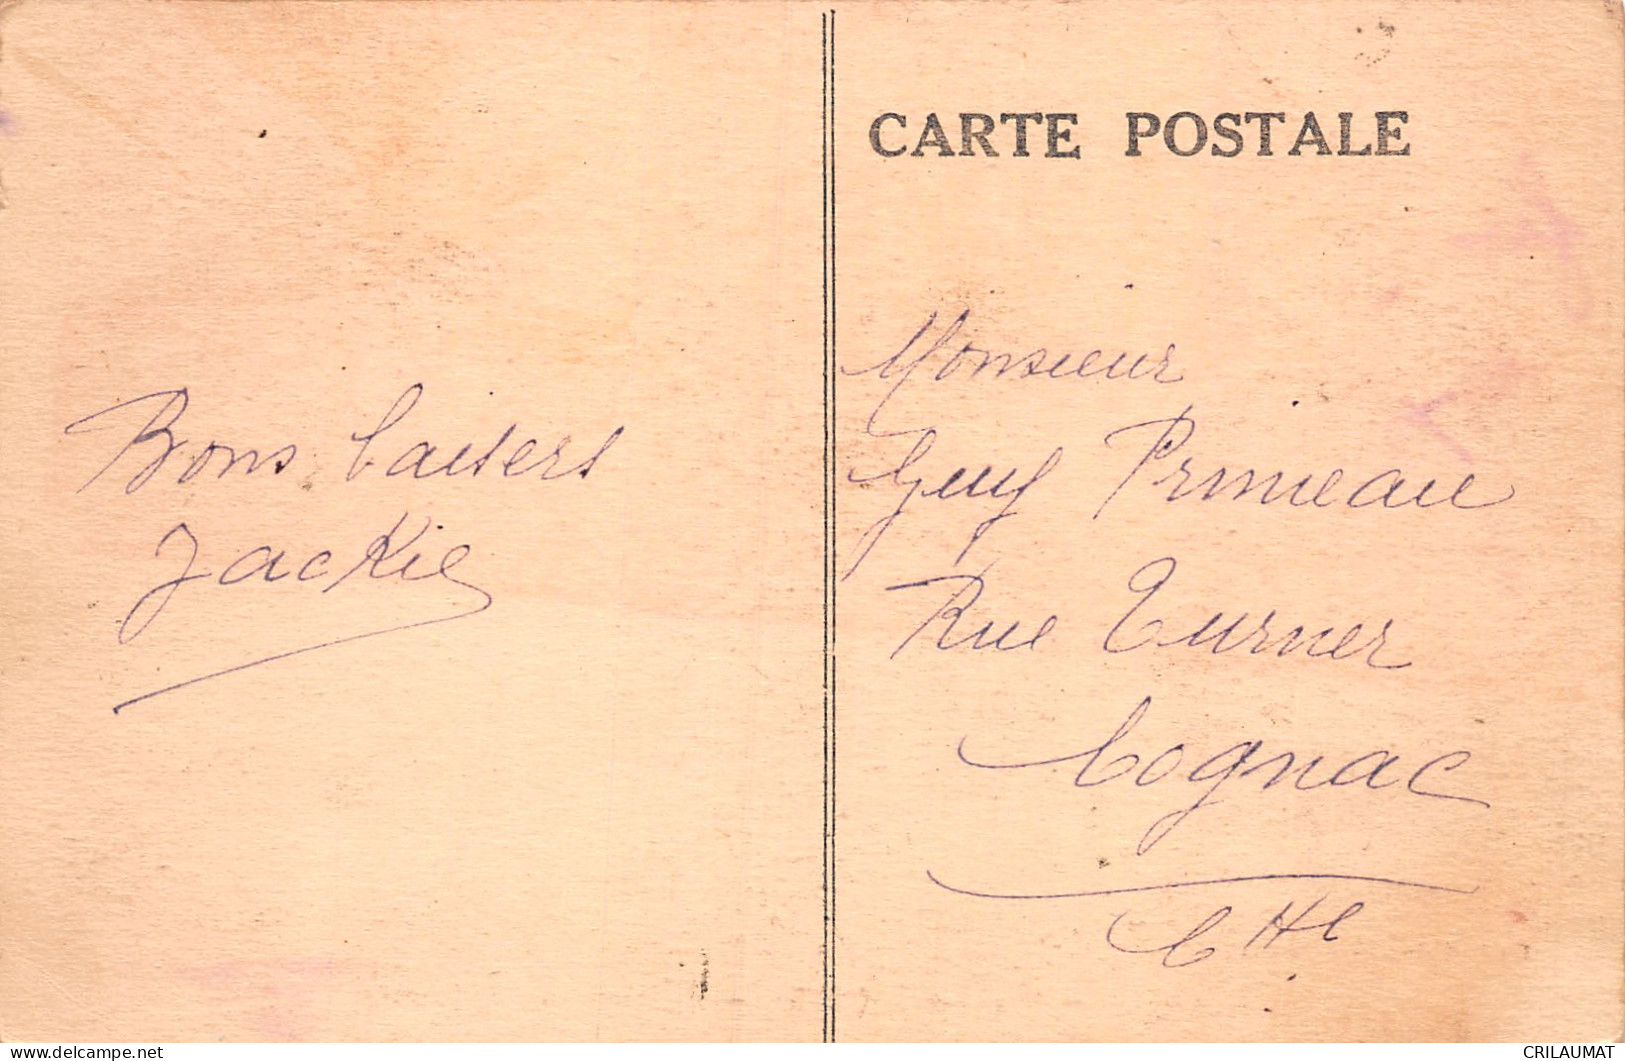 CARTE POSTALE
Bons baisers
Jackie
Monsieur
Guy Primeau
Rue Turner
Cognac
Cte
www.delcampe.net
CRILAUMAT